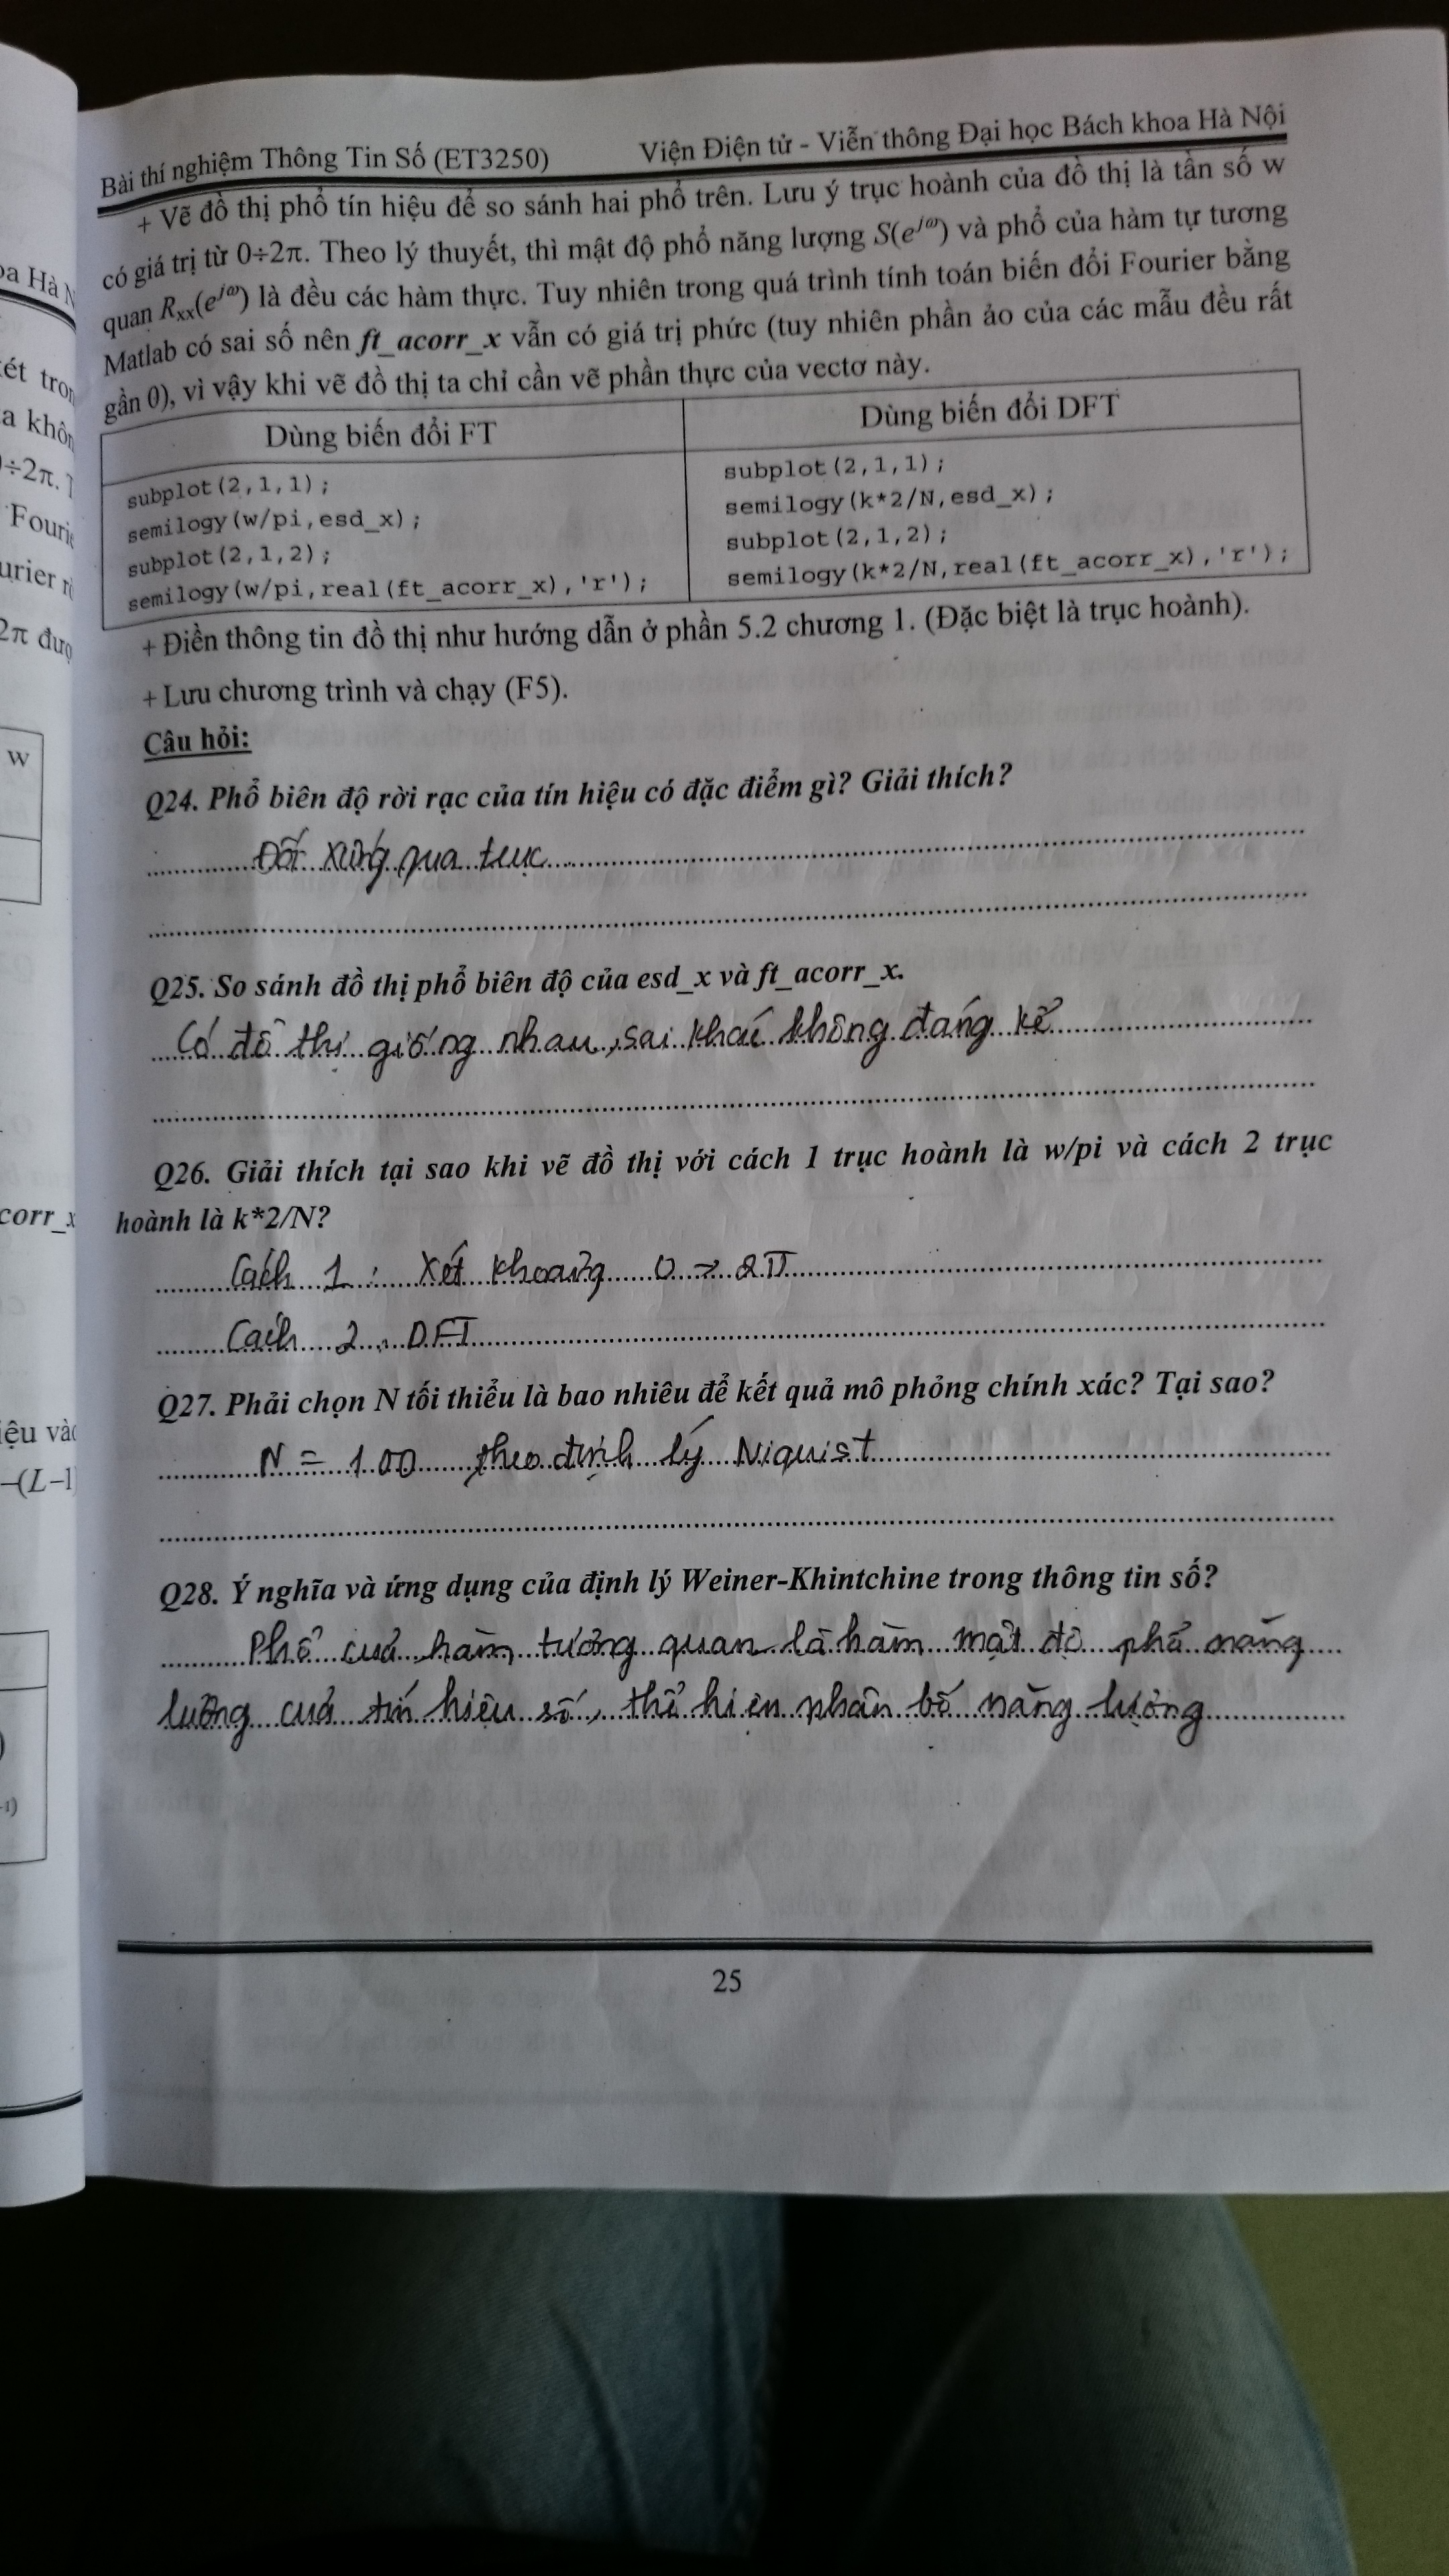 Bài thí nghiệm Thông Tin Số (ET3250) Viện Điện tử - Viễn thông Đại học Bách khoa Hà Nội
+ Vẽ đồ thị phổ tín hiệu để so sánh hai phổ trên. Lưu ý trục hoành của đồ thị là tần số w
có giá trị từ 0÷2π. Theo lý thuyết, thì mật độ phổ năng lượng S(e^jω) và phổ của hàm tự tương
quan Rxx(e^jω) là đều các hàm thực. Tuy nhiên trong quá trình tính toán biến đổi Fourier bằng
Matlab có sai số nên ft_acorr_x vẫn có giá trị phức (tuy nhiên phần ảo của các mẫu đều rất
gần 0), vì vậy khi vẽ đồ thị ta chỉ cần vẽ phần thực của vectơ này.
Dùng biến đổi FT
subplot(2,1,1);
semilogy(w/pi,esd_x);
subplot(2,1,2);
semilogy(w/pi,real(ft_acorr_x),'r');
Dùng biến đổi DFT
subplot(2,1,1);
semilogy(k*2/N,esd_x);
subplot(2,1,2);
semilogy(k*2/N,real(ft_acorr_x),'r');
+ Điền thông tin đồ thị như hướng dẫn ở phần 5.2 chương 1. (Đặc biệt là trục hoành).
+ Lưu chương trình và chạy (F5).
Câu hỏi:
Q24. Phổ biên độ rời rạc của tín hiệu có đặc điểm gì? Giải thích?
Đối xứng qua trục
Q25. So sánh đồ thị phổ biên độ của esd_x và ft_acorr_x.
Có đồ thị giống nhau, sai khác không đáng kể
Q26. Giải thích tại sao khi vẽ đồ thị với cách 1 trục hoành là w/pi và cách 2 trục
hoành là k*2/N?
Cách 1 : Xét khoảng 0 → 2π
Cách 2 : DFT
Q27. Phải chọn N tối thiểu là bao nhiêu để kết quả mô phỏng chính xác? Tại sao?
N = 100 theo định lý Niquist
Q28. Ý nghĩa và ứng dụng của định lý Weiner-Khintchine trong thông tin số?
Phổ của hàm tương quan là hàm mật độ phổ năng
lượng của tín hiệu số, thể hiện phân bố năng lượng
25
oa Hà N
a khôn
0÷2π.
Fouri
2π đượ
w
corr_x
iệu vào
–(L–1